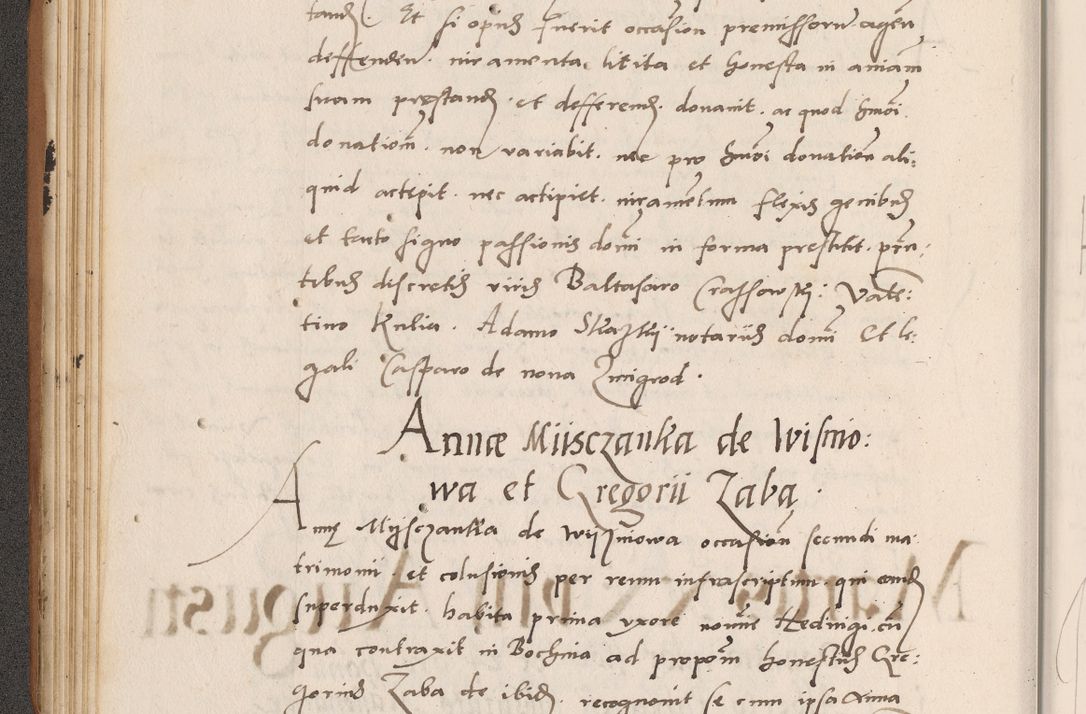 tand(em). Et si opus fuerit occasion premissoru(m) agen
deffenden. iuramenta licita et honesta in aniam
suam prestand. et defferend. donauit. ac quod hmoi
donationem. non variabit. nec pro hmoi donation ali:
quid accepit. nec accipiet. iuramentum flexis genibus
et tacto signo passionis domi in forma prestitit. pñ:
tibus discretis viris Baltasaro Crassowski: Valen:
tino Kulia. Adamo notariis domi Et le:
gali Casparo de noua Zmigrod.
Annæ Mijsczanka de Wisnio:
wa et Gregorii Zaba.
Annę Mijsczanka de Wijsniowa occasion secundi ma:
trimonii. et colusionis per reum infrascriptum. qui eand
superduxit. habita prima vxore nomine Hedwigi. cu
qua contraxit in Bochnia ad propom honestus Gre:
gorius Zaba de ibid. recognouit se cum ipsa Anna